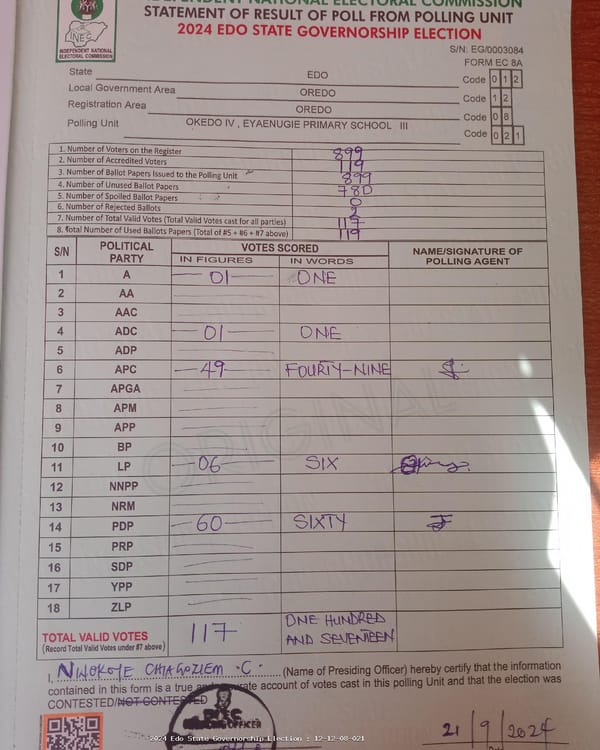 INDEPENDENT NATIONAL ELECTORAL COMMISSION
STATEMENT OF RESULT OF POLL FROM POLLING UNIT
2024 EDO STATE GOVERNORSHIP ELECTION
INEC
INDEPENDENT NATIONAL
ELECTORAL COMMISSION
S/N: EG/0003084
FORM EC 8A
State EDO Code 0 1 2
Local Government Area OREDO Code 1 2
Registration Area OREDO Code 0 8
Polling Unit OKEDO IV , EYAENUGIE PRIMARY SCHOOL III Code 0 2 1
1. Number of Voters on the Register 899
2. Number of Accredited Voters 119
3. Number of Ballot Papers Issued to the Polling Unit 899
4. Number of Unused Ballot Papers 780
5. Number of Spoiled Ballot Papers 0
6. Number of Rejected Ballots 2
7. Number of Total Valid Votes (Total Valid Votes cast for all parties) 117
8. Total Number of Used Ballots Papers (Total of #5 + #6 + #7 above) 119
S/N POLITICAL PARTY VOTES SCORED NAME/SIGNATURE OF POLLING AGENT
IN FIGURES IN WORDS
1 A 01 ONE
2 AA
3 AAC
4 ADC 01 ONE
5 ADP
6 APC 49 FOURTY-NINE
7 APGA
8 APM
9 APP
10 BP
11 LP 06 SIX
12 NNPP
13 NRM
14 PDP 60 SIXTY
15 PRP
16 SDP
17 YPP
18 ZLP
ORIGINAL
TOTAL VALID VOTES 117 ONE HUNDRED
(Record Total Valid Votes under #7 above) AND SEVENTEEN
I, NWOKOYE CHIAGOZIEM .C. (Name of Presiding Officer) hereby certify that the information
contained in this form is a true and accurate account of votes cast in this polling Unit and that the election was
CONTESTED/NOT CONTESTED
OFFICER
21/9/2024
2024 Edo State Governorship Election : 12-12-08-021